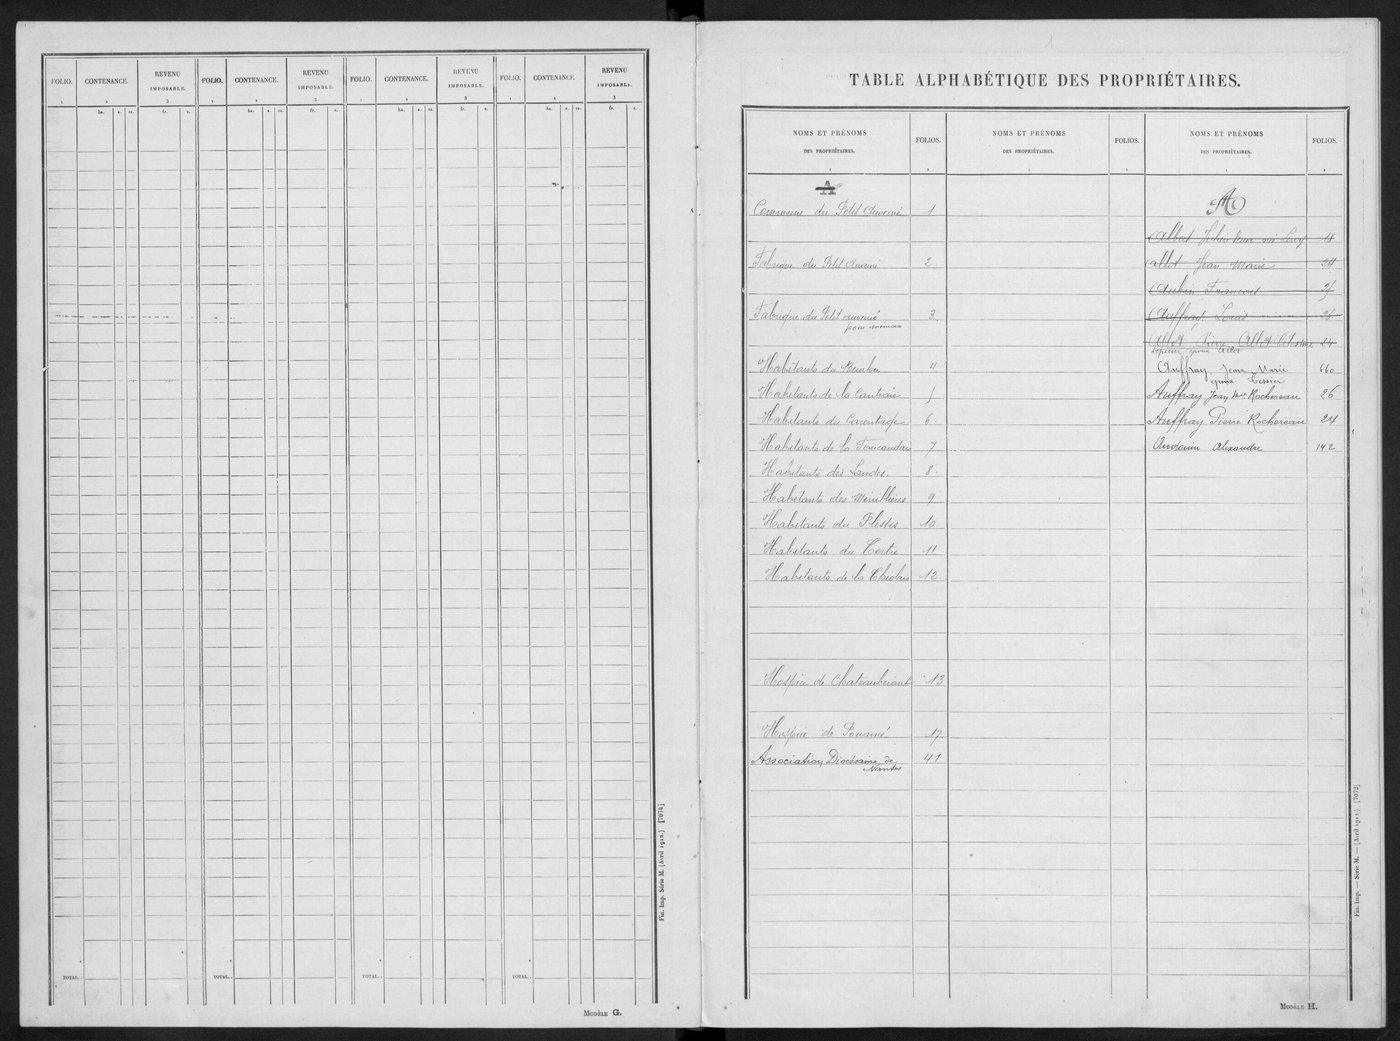 FOLIO. CONTENANCE. REVENU IMPOSABLE. FOLIO. CONTENANCE. REVENU IMPOSABLE. FOLIO. CONTENANCE. REVENU IMPOSABLE. FOLIO. CONTENANCE. REVENU IMPOSABLE.
1 2 3 1 2 3 1 2 3 1 2 3
ha. a. ca. fr. c. ha. a. ca. fr. c. ha. a. ca. fr. c. ha. a. ca. fr. c.
TOTAL. TOTAL. TOTAL. TOTAL.
Fin. Imp. Série M. (Avril 1912.) [7074]
MODÈLE G.
1
TABLE ALPHABÉTIQUE DES PROPRIÉTAIRES.
NOMS ET PRÉNOMS
DES PROPRIÉTAIRES.
FOLIOS.
A
Commune du Petit Auverné 1
Fabrique du Petit Auverné 2
Fabrique du Petit Auverné 3
pour mémoire
Habitants du 4
Habitants de la 5
Habitants du 6
Habitants de la 7
Habitants des Landes 8
Habitants des 9
Habitants du Plessis 10
Habitants du Tertre 11
Habitants de la 12
Hospice de Chateaubriant 13
Hospice de Pouancé 17
Association Diocésaine de
Nantes 41
NOMS ET PRÉNOMS
DES PROPRIÉTAIRES.
FOLIOS.
NOMS ET PRÉNOMS
DES PROPRIÉTAIRES.
FOLIOS.
A
Allot Jean Marie 24
Aubin François 25
Auffray Louis 26
Allot Pierre Allot Célestine 24
épouse Allot
Auffray Jean Marie 660
épouse Tessier
Auffray Jean Mie Rochereau 26
Auffray Pierre Rochereau 24
Audouin Alexandre 142
Fin. Imp. — Série M. — (Avril 1912.) [7073]
MODÈLE H.